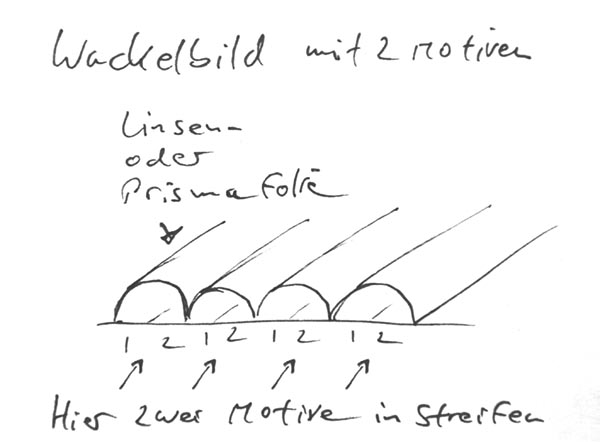 Wackelbild mit 2 Motiven
Linsen-
oder
Prismafolie
1 2 1 2 1 2 1 2
Hier zwei Motive in Streifen